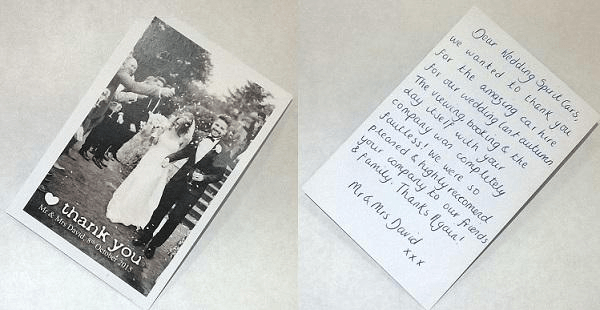 thank you
Mr & Mrs David, 8th October 2015
Dear Wedding Spirit Cars,
we wanted to thank you
for the amazing car hire
for our wedding last autumn.
The viewing, booking & the
day itself with your
company was completely
faultless! We were so
pleaned & highly recomend
your company to our friends
& family. Thanks Again!
Mr & Mrs David
xxx